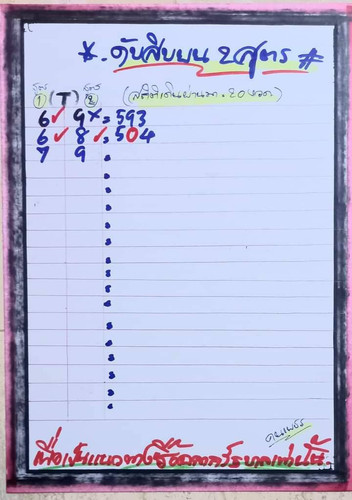 *. ดับสิบบน 2 สูตร #
สูตร 1 (T) สูตร 2 (สถิติเดินผ่านมา. 20 งวด)
6✓ 9× = 593
6✓ 8✓ = 504
7 9 =
คนเพชร
เพื่อเป็นแนวทางซื้อสลากกินรัฐบาลเท่านั้น